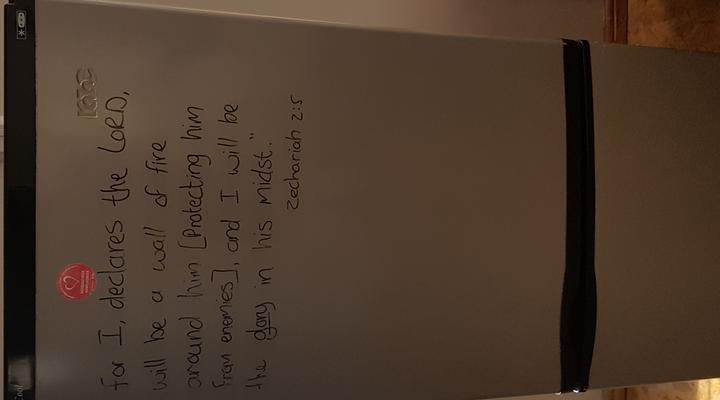 For I, declares the LORD,
will be a wall of fire
around him [Protecting him
from enemies], and I will be
the glory in his midst."
Zechariah 2:5